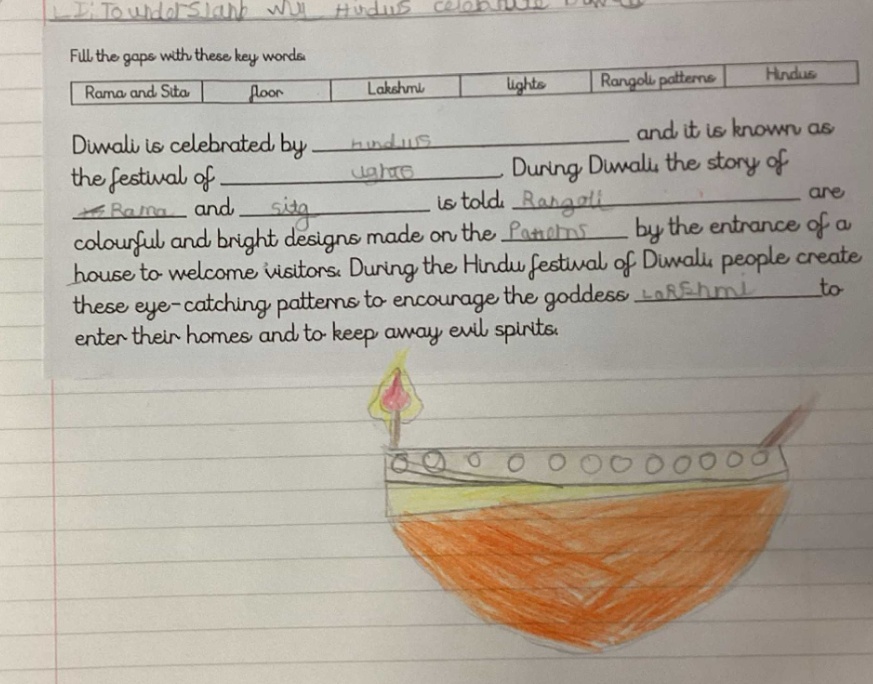 LI: To understand why Hindus celebrate Diwali
Fill the gaps with these key words.
Rama and Sita floor Lakshmi lights Rangoli patterns Hindus
Diwali is celebrated by Hindus and it is known as
the festival of lights. During Diwali, the story of
Rama and sita is told. Rangoli are
colourful and bright designs made on the Patterns by the entrance of a
house to welcome visitors. During the Hindu festival of Diwali, people create
these eye-catching patterns to encourage the goddess LaKshmi to
enter their homes and to keep away evil spirits.